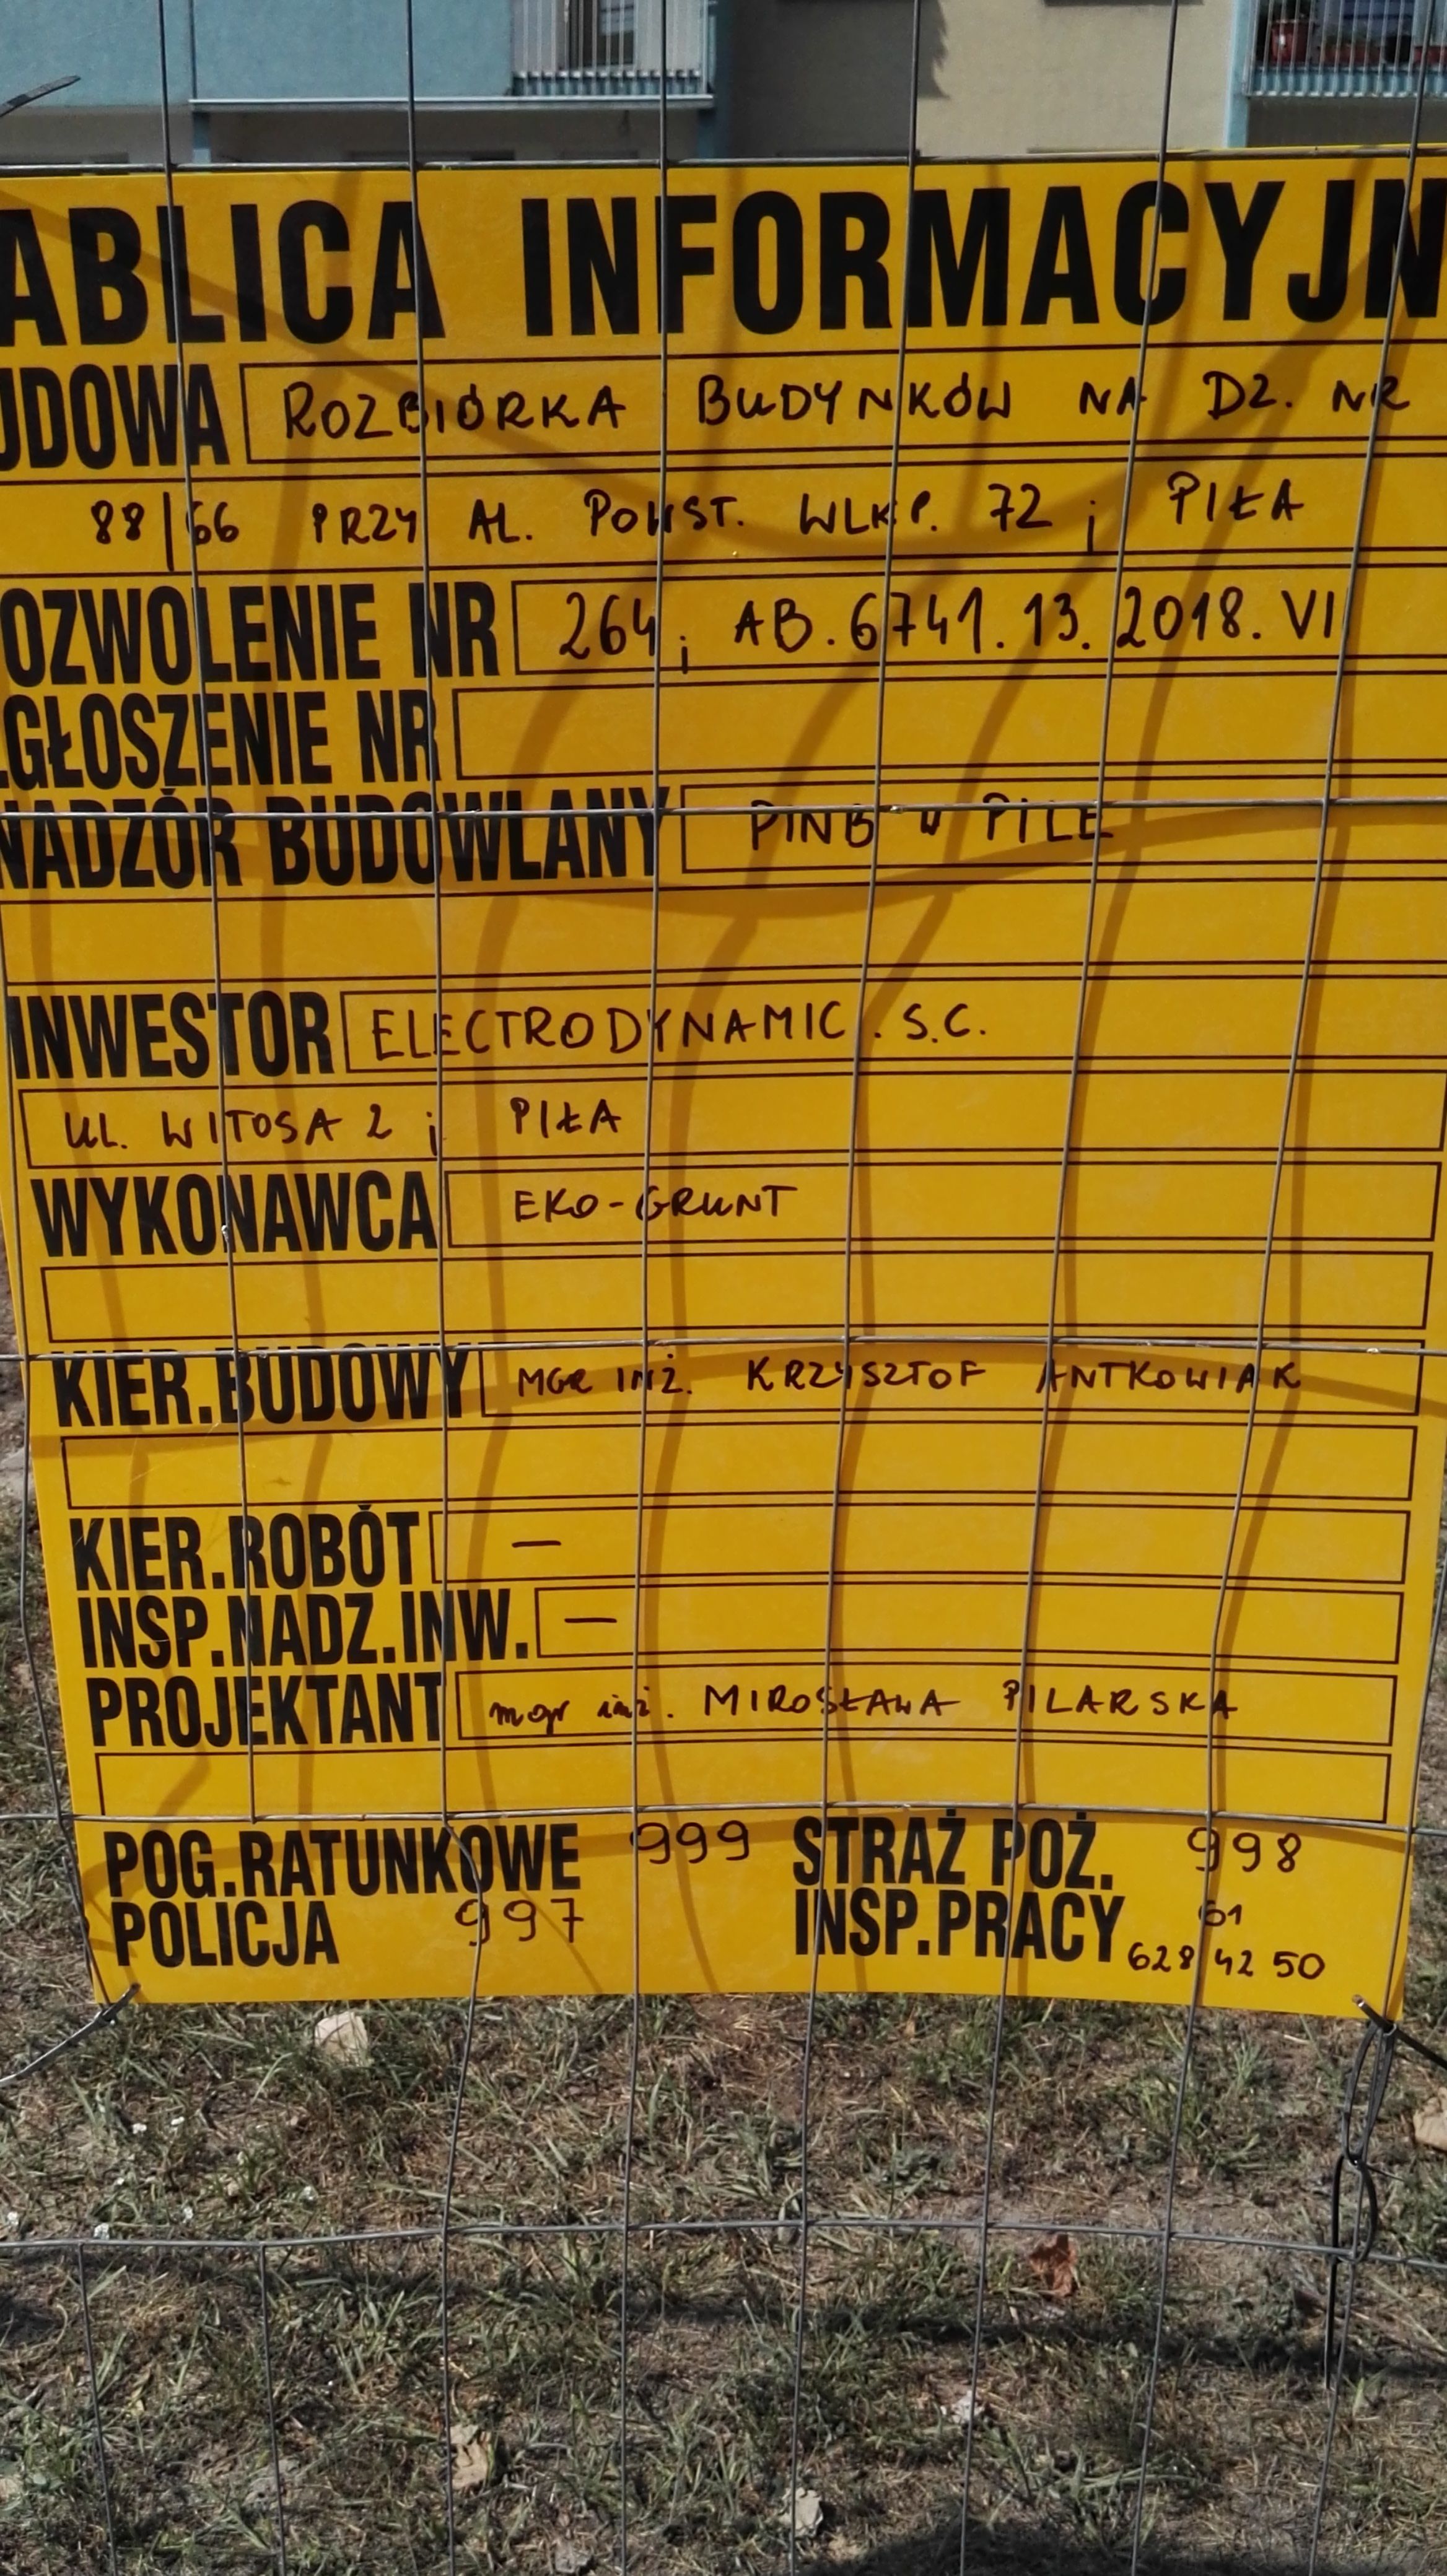 ABLICA INFORMACYJN
UDOWA ROZBIÓRKA BUDYNKÓW NA DZ. NR
88/66 PRZY AL. POWST. WLKP. 72 ; PIŁA
OZWOLENIE NR 264 ; AB.6741.13.2018.VI
ZGŁOSZENIE NR
NADZÓR BUDOWLANY PINB W PILE
INWESTOR ELECTRODYNAMIC. S.C.
UL. WITOSA 2 ; PIŁA
WYKONAWCA EKO-GRUNT
KIER.BUDOWY MGR INŻ. KRZYSZTOF ANTKOWIAK
KIER.ROBÓT —
INSP.NADZ.INW. —
PROJEKTANT mgr inż. MIROSŁAWA PILARSKA
POG.RATUNKOWE 999 STRAŻ POŻ. 998
POLICJA 997 INSP.PRACY 61
628 42 50